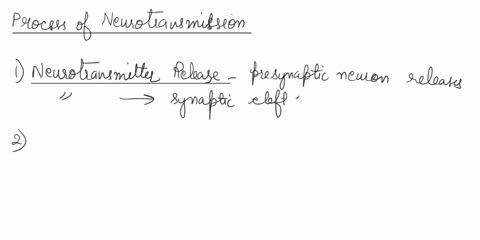 Process of Neurotransmission
1) Neurotransmitter Release - presynaptic neuron releases
〃 → synaptic cleft.
2)